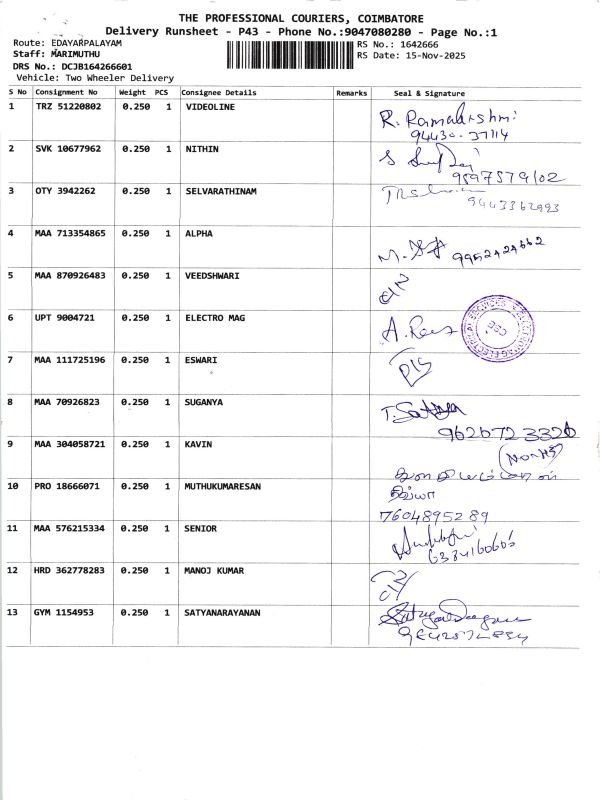 THE PROFESSIONAL COURIERS, COIMBATORE
Delivery Runsheet - P43 - Phone No.:9047080280 - Page No.:1
Route: EDAYARPALAYAM
RS No.: 1642666
Staff: MARIMUTHU
RS Date: 15-Nov-2025
DRS No.: DCJB164266601
Vehicle: Two Wheeler Delivery
S No Consignment No Weight PCS Consignee Details Remarks Seal & Signature
1 TRZ 51220802 0.250 1 VIDEOLINE R. Ramalakshmi
94430-37114
2 SVK 10677962 0.250 1 NITHIN
9597579102
3 OTY 3942262 0.250 1 SELVARATHINAM
9443362993
4 MAA 713354865 0.250 1 ALPHA
9952424662
5 MAA 870926483 0.250 1 VEEDSHWARI
6 UPT 9004721 0.250 1 ELECTRO MAG
7 MAA 111725196 0.250 1 ESWARI
8 MAA 70926823 0.250 1 SUGANYA T. Sathya
9626723326
9 MAA 304058721 0.250 1 KAVIN
10 PRO 18666071 0.250 1 MUTHUKUMARESAN திவ்யா
7604895289
11 MAA 576215334 0.250 1 SENIOR
12 HRD 362778283 0.250 1 MANOJ KUMAR
13 GYM 1154953 0.250 1 SATYANARAYANAN